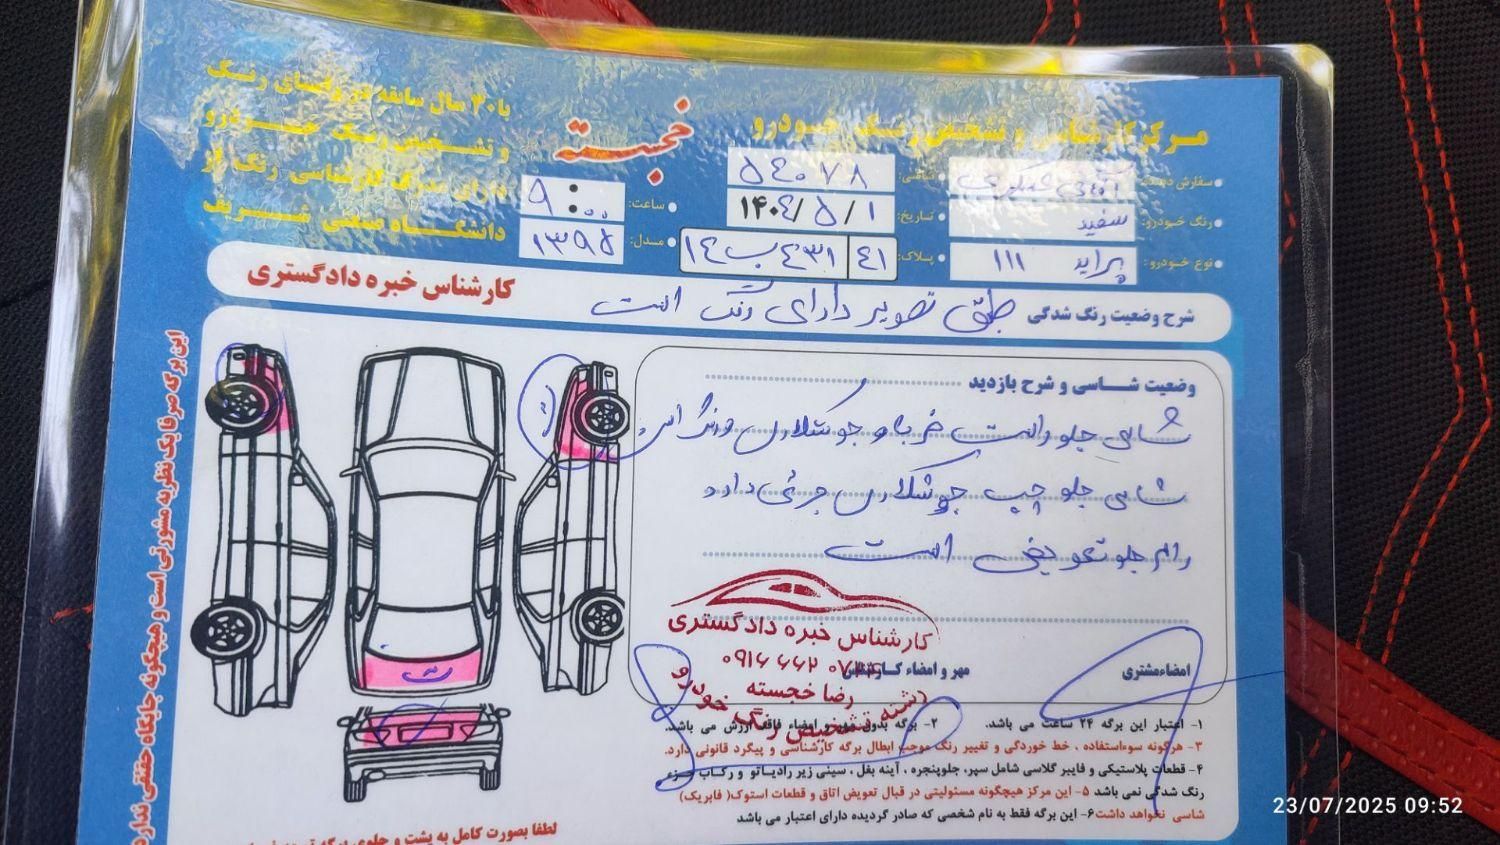 مرکز کارشناسی و تشخیص رنگ خودرو
خجسته
با ۳۰ سال سابقه در راستای رنگ
و تشخیص رنگ خودرو
دارای مدرک کارشناسی رنگ از
دانشگاه صنعتی شریف
سفارش دهنده:
شاسی: ۵۴۰۷۸
ساعت: ۹:۰۰
رنگ خودرو: سفید
تاریخ: ۱۴۰۴/۵/۱
مدل: ۱۳۹۵
نوع خودرو: پراید ۱۱۱
پلاک: ۴۱ ۴۳۱ب۱۴
کارشناس خبره دادگستری
شرح وضعیت رنگ شدگی طبق تصویر دارای رنگ است
وضعیت شاسی و شرح بازدید
شاسی جلو راست ضربه و جوشکاری و رنگ است
شاسی جلو چپ جوشکاری جزئی دارد
رام جلو تعویض است
ت
ت
کارشناس خبره دادگستری
رضا خجسته
رشته تشخیص رنگ خودرو
مهر و امضاء کارشناس
امضاء مشتری
۱- اعتبار این برگه ۲۴ ساعت می باشد. ۲- برگه بدون مهر و امضاء فاقد ارزش می باشد.
۳- هرگونه سوءاستفاده ، خط خوردگی و تغییر رنگ موجب ابطال برگه کارشناسی و پیگرد قانونی دارد.
۴- قطعات پلاستیکی و فایبر گلاسی شامل سپر، جلوپنجره ، آینه بغل ، سینی زیر رادیاتو و رکاب جزء
رنگ شدگی نمی باشد ۵- این مرکز هیچگونه مسئولیتی در قبال تعویض اتاق و قطعات استوک( فابریک)
شاسی نخواهد داشت ۶- این برگه فقط به نام شخصی که صادر گردیده دارای اعتبار می باشد
این برگه صرفا یک نظریه مشورتی است و هیچگونه جایگاه حقیقی ندارد
لطفا بصورت کامل به پشت و جلوی برگه
23/07/2025 09:52